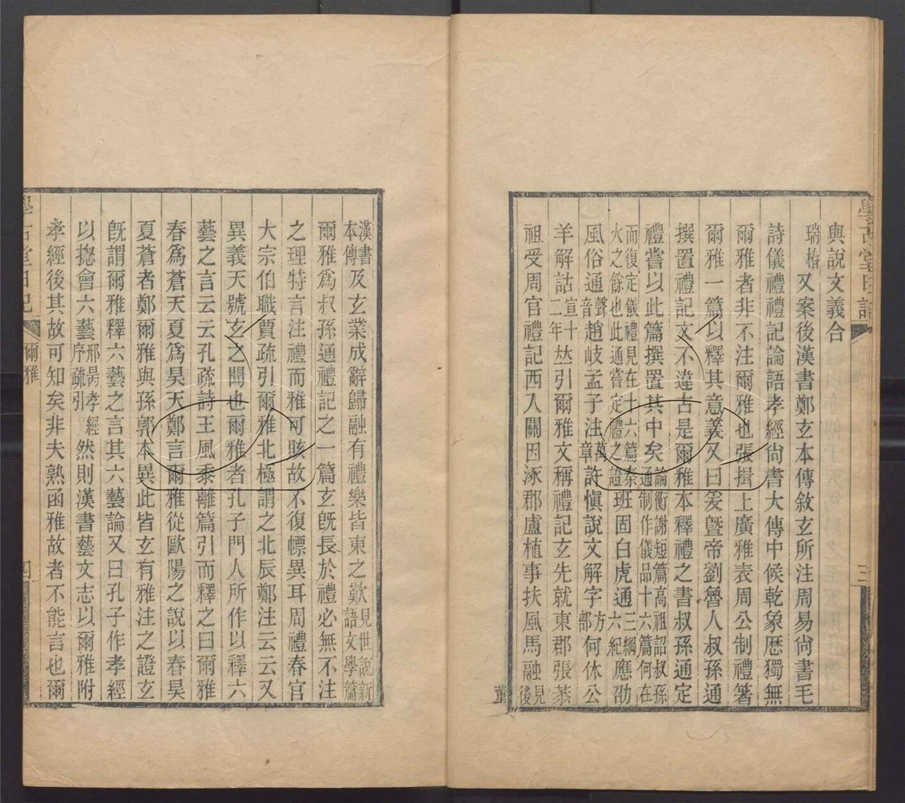 與說文義合
瑞椿 又案後漢書鄭玄本傳敘玄所注周易尙書毛
詩儀禮禮記論語孝經尙書大傳中候乾象厯獨無
爾雅者非不注爾雅也張揖上廣雅表周公制禮箸
爾雅一篇以釋其意義又曰爰曁帝劉魯人叔孫通
撰置禮記文不違古是爾雅本釋禮之書叔孫通定
禮嘗以此篇撰置其中矣論衡謝短篇高祖詔叔孫通制作儀品十六篇何在
而復定儀禮見在十六篇秦火之餘也此通嘗定禮之證班固白虎通三綱六紀應劭
風俗通聲音趙岐孟子注萬章許愼說文解字方部何休公
羊解詁宣十二年竝引爾雅文稱禮記玄先就東郡張恭
祖受周官禮記西入關因涿郡盧植事扶風馬融見後
董
學古堂日記
三
漢書本傳及玄業成辭歸融有禮樂皆東之歎見世說新語文學篇
爾雅爲叔孫通禮記之一篇玄旣長於禮必無不注
之理特言注禮而雅可賅故不復幖異耳周禮春官
大宗伯職賈疏引爾雅北極謂之北辰鄭注云云又
異義天號玄之聞也爾雅者孔子門人所作以釋六
藝之言云云孔疏詩王風黍離篇引而釋之曰爾雅
春爲蒼天夏爲昊天鄭言爾雅從歐陽之說以春昊
夏蒼者鄭爾雅與孫郭本異此皆玄有雅注之證玄
旣謂爾雅釋六藝之言其六藝論又曰孔子作孝經
以揔會六藝邢昺孝經序疏引然則漢書藝文志以爾雅附
孝經後其故可知矣非夫熟函雅故者不能言也爾
學古堂日記
爾雅
四